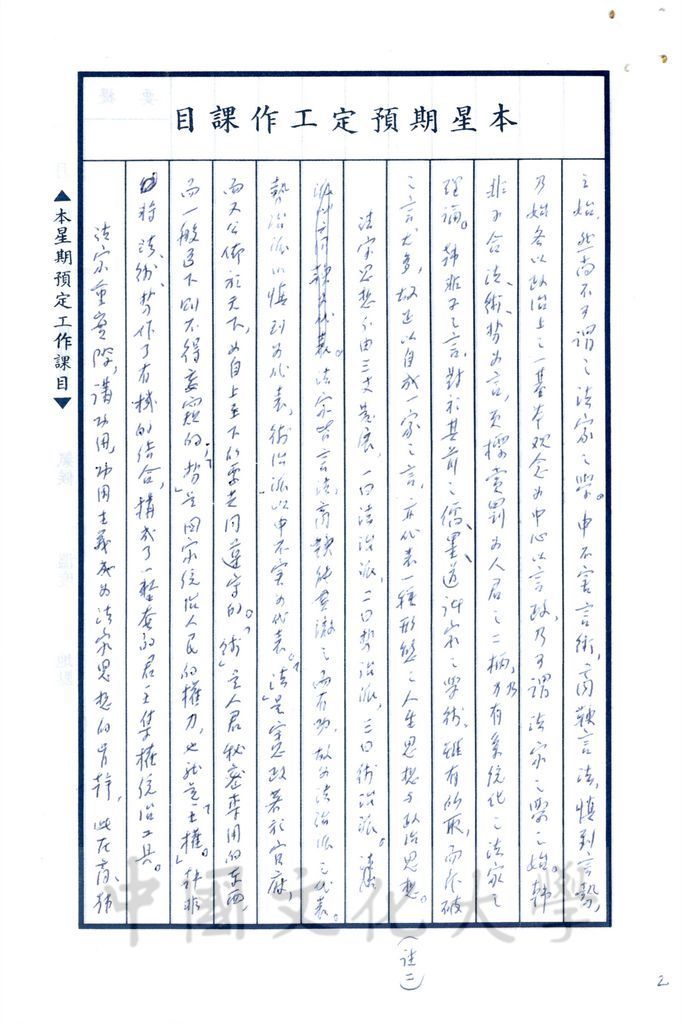 本星期預定工作課目
之始，然尚不可謂之法家之學。申不害言術，商鞅言法，慎到言勢，
乃始各以政治上之一基本观念为中心以言政，乃可謂法家之學之始。韓
非子合法、術、势为言，更標賞罰为人君之二柄，乃有系统化之法家之
理論。韓非子之言，對於其前之儒、墨、道諸家之學術，雖有所取，而斥破
之言尤多，故足以自成一家之言，亦代表一種形態之人生思想与政治思想。
（註二）
法家思想乃由三支發展，一曰法治派，二曰势治派，三曰術治派。
法家皆言法，商鞅能貫澈之而有功，故为法治派之代表。
勢治派以慎到为代表，術治派以申不害为代表。「法」是憲政著於官府，
而又公佈於天下，为自上至下所要共同遵守的。「術」是人君秘密運用的東西，
而一般臣下則不得妄窺的，「势」是国家统治人民的權力，也就是「主權」。韓非
将法、術、势作了有機的结合，構成了一整套的君主集權统治工具。
法家重實際，講功用，功用主義成为法家思想的骨幹，此在商、韩
▲本星期預定工作課目▼
中國文化大學
2